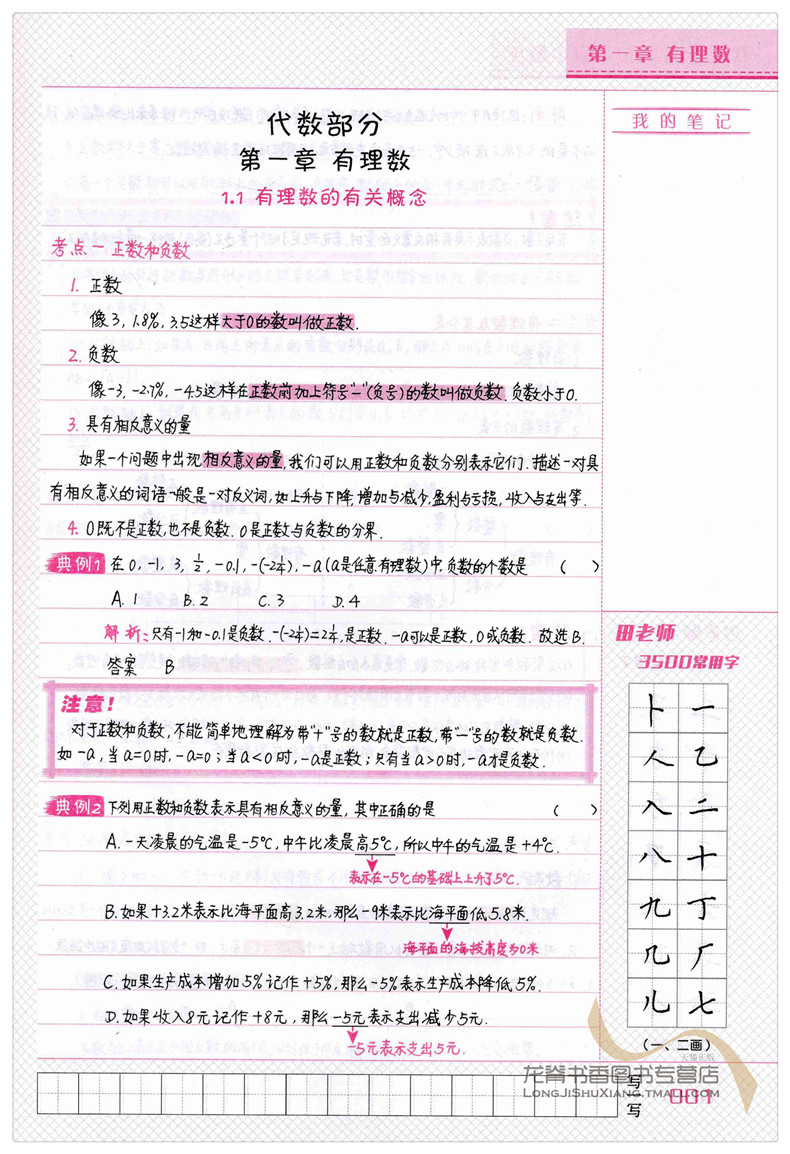 第一章 有理数
我的笔记
代数部分
第一章 有理数
1.1 有理数的有关概念
考点一 正数和负数
1. 正数
像3, 1.8%, 3.5这样大于0的数叫做正数.
2. 负数
像-3, -2.7%, -4.5这样在正数前加上符号“-”(负号)的数叫做负数. 负数小于0.
3. 具有相反意义的量
如果一个问题中出现相反意义的量,我们可以用正数和负数分别表示它们. 描述一对具
有相反意义的词语一般是一对反义词,如上升与下降,增加与减少,盈利与亏损,收入与支出等.
4. 0既不是正数,也不是负数. 0是正数与负数的分界.
典例1 在0, -1, 3, 1/2, -0.1, -(-2 1/4), -a(a是任意有理数)中,负数的个数是 ( )
A. 1 B. 2 C. 3 D. 4
解析: 只有-1和-0.1是负数, -(-2 1/4)=2 1/4,是正数. -a可以是正数, 0或负数. 故选B.
答案 B
注意!
对于正数和负数,不能简单地理解为带“+”号的数就是正数,带“-”号的数就是负数.
如-a, 当a=0时, -a=0; 当a<0时, -a是正数; 只有当a>0时, -a才是负数.
典例2 下列用正数和负数表示具有相反意义的量, 其中正确的是 ( )
A. 一天凌晨的气温是-5℃, 中午比凌晨最高5℃, 所以中午的气温是+4℃.
表示在-5℃的基础上上升了5℃.
B. 如果+3.2米表示比海平面高3.2米, 那么-9米表示比海平面低5.8米.
海平面的海拔高度为0米
C. 如果生产成本增加5%记作+5%, 那么-5%表示生产成本降低5%.
D. 如果收入8元记作+8元, 那么-5元表示支出减少5元.
-5元表示支出5元.
田老师
3500常用字
卜 一
人 乙
入 二
八 十
九 丁
几 厂
儿 七
(一、二画)
天猫正版
龙脊书香图书专营店
LONGJISHUXIANG.TMALL.COM
写
写
001